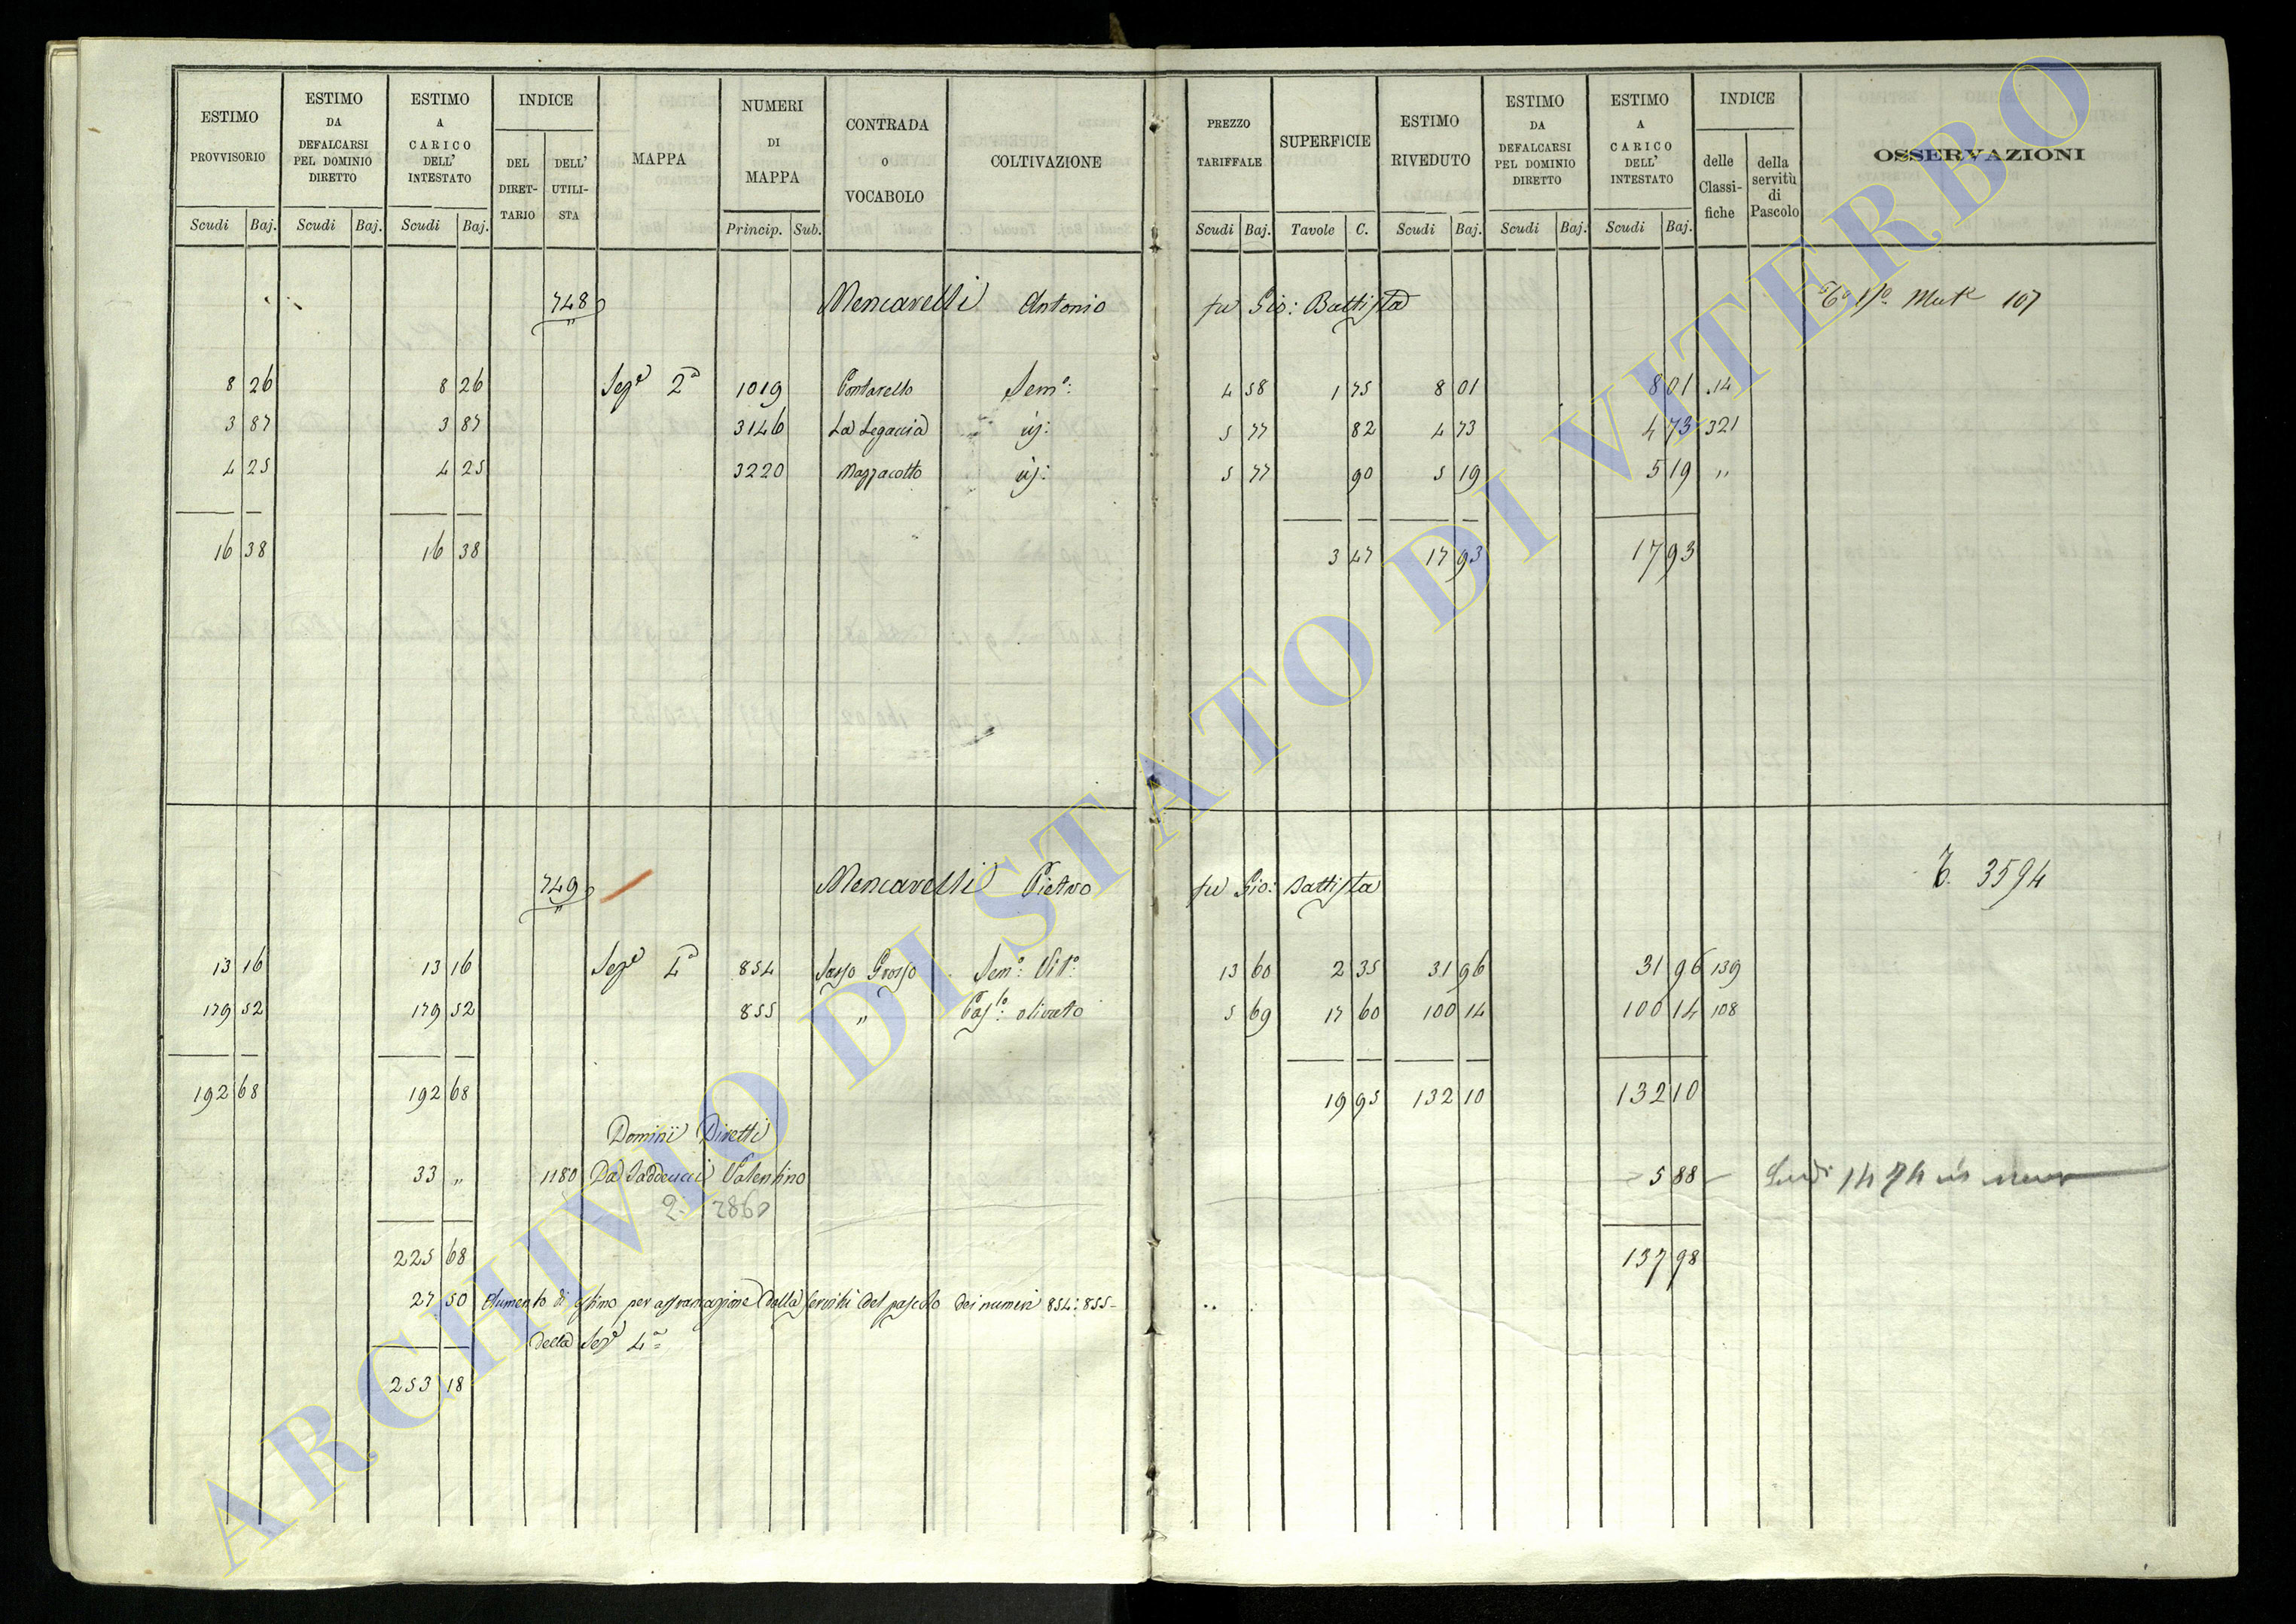 ESTIMO PROVVISORIO
Scudi Baj.
ESTIMO DA DEFALCARSI PEL DOMINIO DIRETTO
Scudi Baj.
ESTIMO A CARICO DELL' INTESTATO
Scudi Baj.
INDICE
DEL DIRET-TARIO
DELL' UTILI-STA
MAPPA
NUMERI DI MAPPA
Princip. Sub.
CONTRADA O VOCABOLO
COLTIVAZIONE
PREZZO TARIFFALE
Scudi Baj.
SUPERFICIE
Tavole C.
ESTIMO RIVEDUTO
Scudi Baj.
ESTIMO DA DEFALCARSI PEL DOMINIO DIRETTO
Scudi Baj.
ESTIMO A CARICO DELL' INTESTATO
Scudi Baj.
INDICE
delle Classi-fiche
della servitù di Pascolo
OSSERVAZIONI
748 Mencarelli Antonio fu Gio: Battista 107
8 26 8 26 Sezᵉ 2ᵃ 1019 Pontarello Semᵒ: 4 58 1 75 8 01 8 01 14
3 87 3 87 3146 La Legaccia id: 5 77 82 4 73 4 73 321
4 25 4 25 3220 Mazzacotto id: 5 77 90 5 19 5 19 "
16 38 16 38 3 47 17 93 17 93
749 Mencarelli Pietro fu Gio: Battista 3594
13 16 13 16 Sezᵉ 4ᵃ 854 Sasso Grosso Semᵒ: Vitᵒ: 13 60 2 35 31 96 31 96 139
179 52 179 52 855 " Pasᵒ: olivato 5 69 17 60 100 14 100 14 108
192 68 192 68 19 95 132 10 132 10
Dominii Diretti
33 " 1180 Da Taddeucci Valentino 5 88
225 68 137 98
27 50 Aumento di estimo per affrancazione della servitù del pascolo dei numeri 854: 855-
della Sezᵉ 4ᵃ
253 18
ARCHIVIO DI STATO DI VITERBO